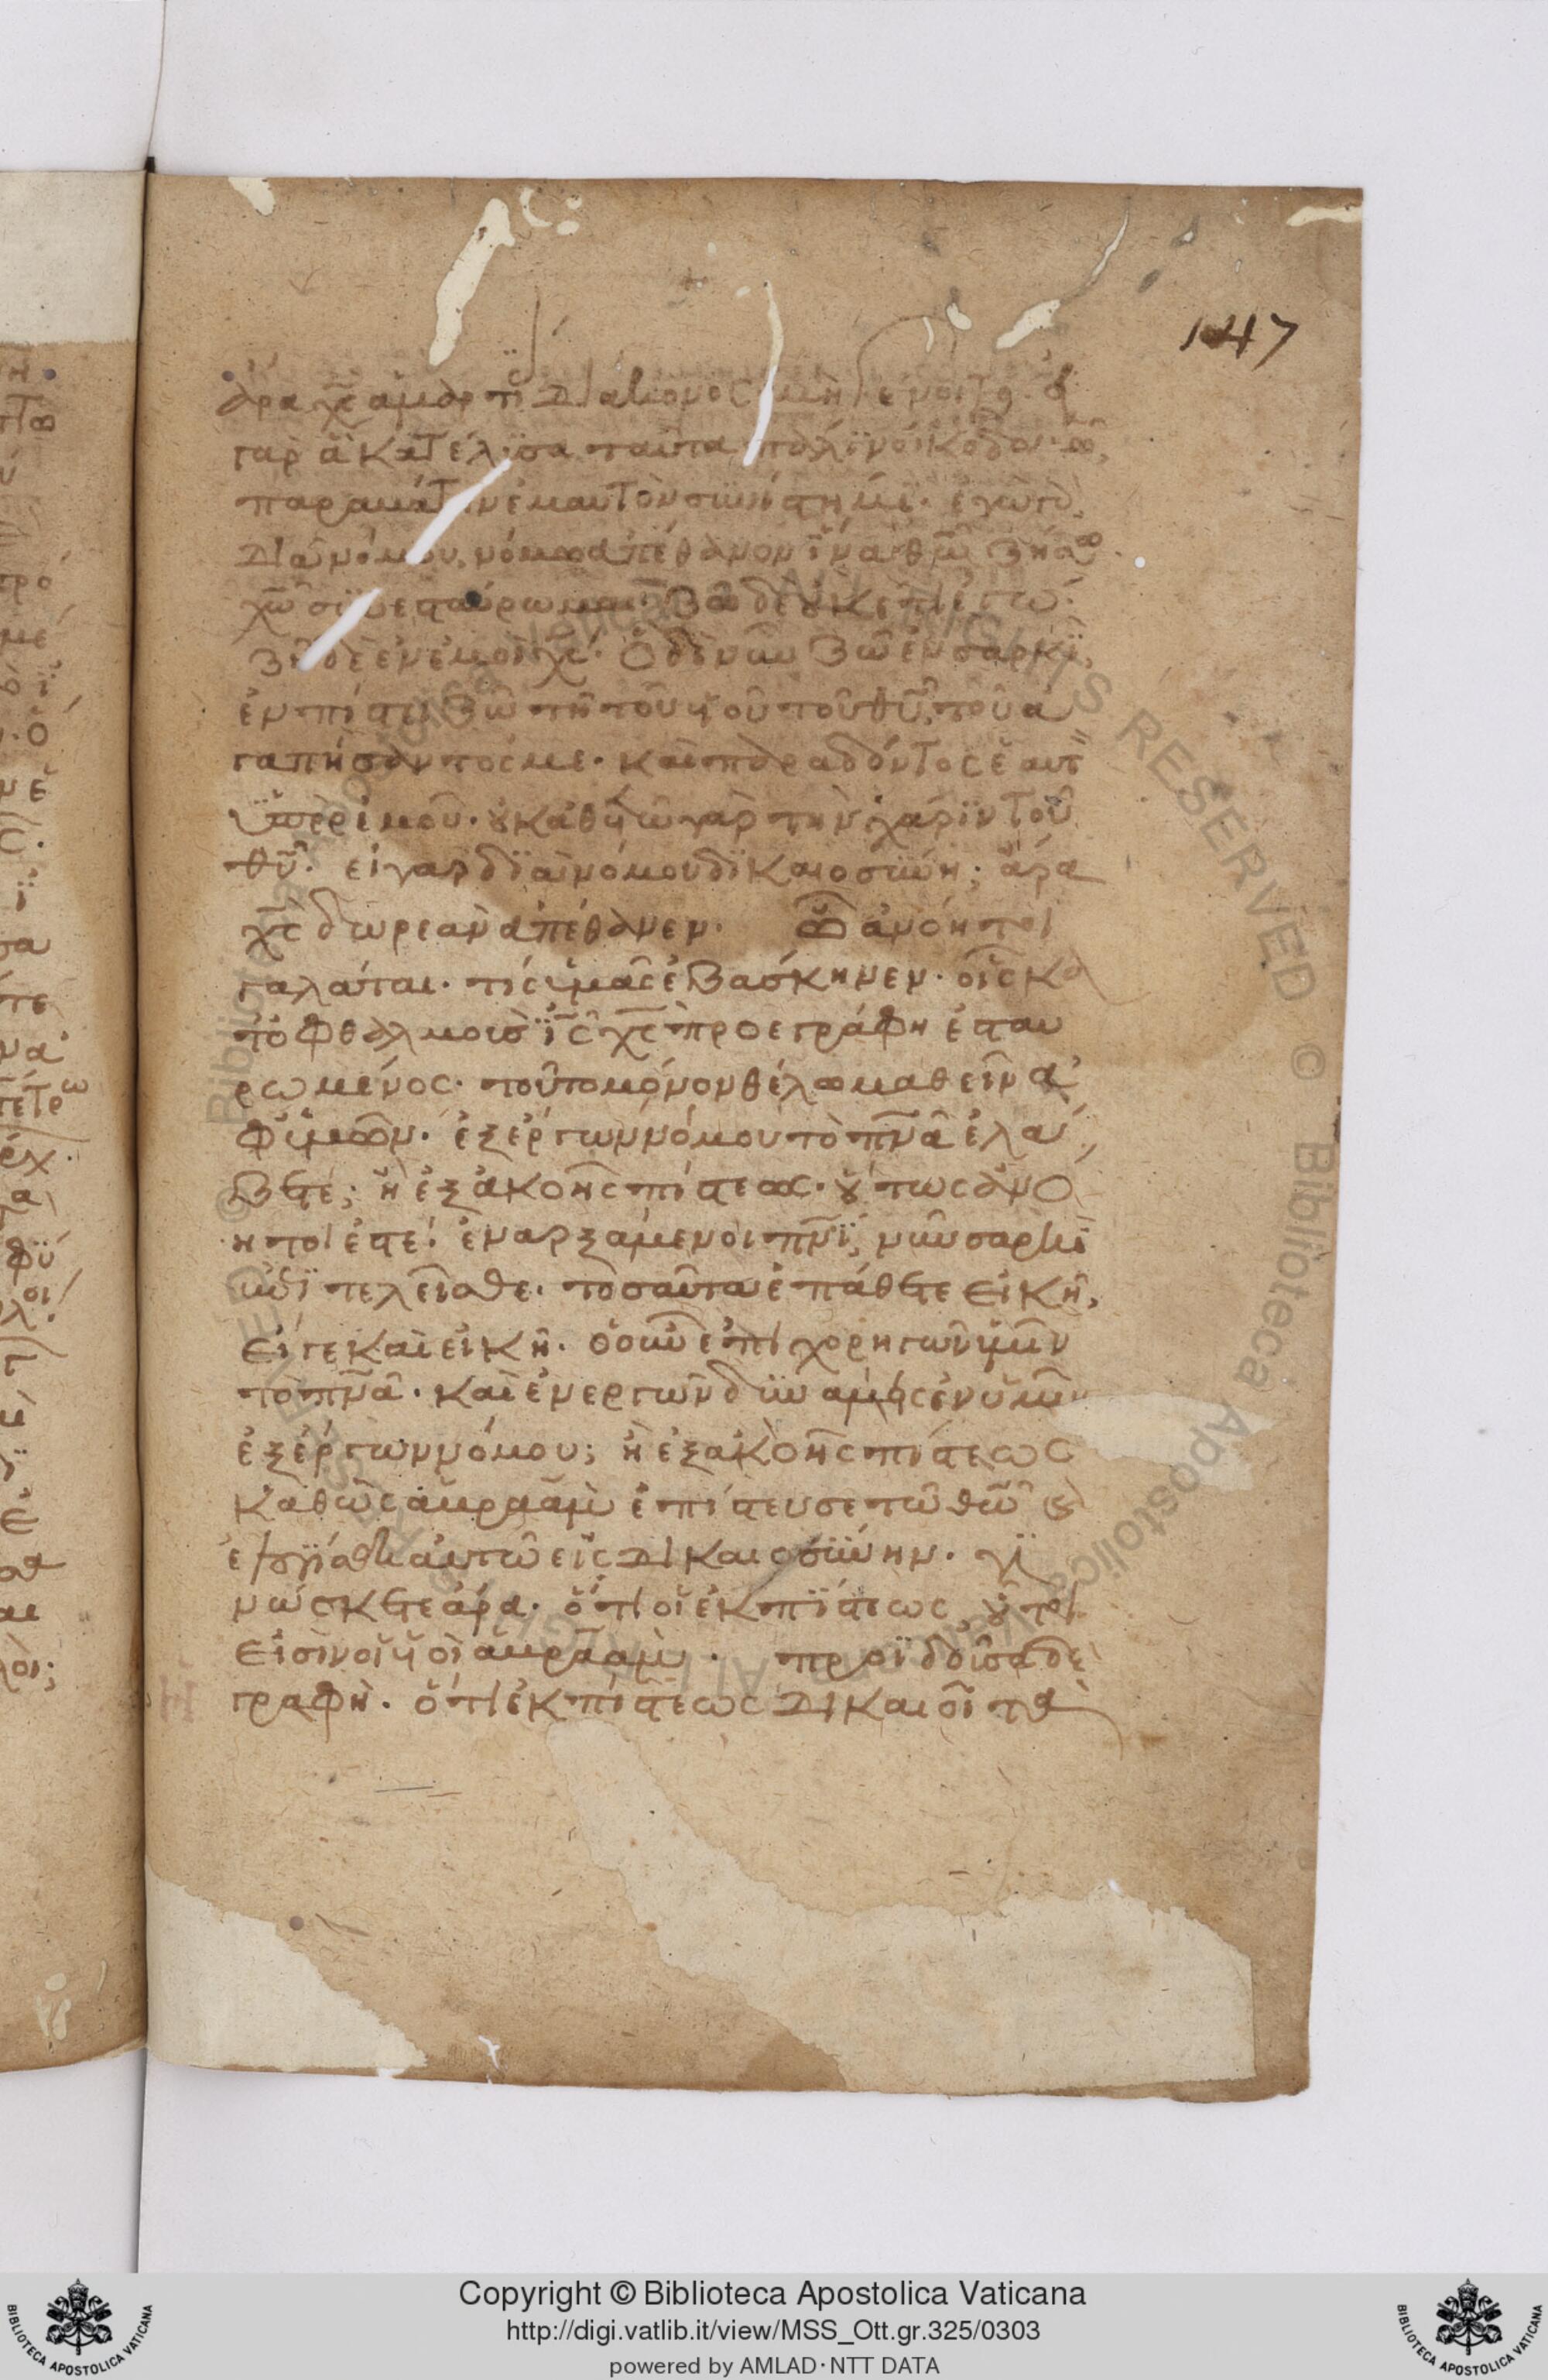 147
ἄρα χς ἁμαρτΐ διάκονος μὴ γένοιτο. εἰ
γαρ ἃ κατέλϋσα ταῦτα πάλϊν οἰκοδομῶ,
παραβάτην ἐμαυτὸν σϋνίστημϊ. ἐγὼ γὰρ
διὰ νόμου, νόμω ἀπέθανον ἵνα θῶ ζήσω.
χῶ σϋνεσταύρωμαι. ζῶ δὲ οὐκέτι ἐγώ.
ζῆ δὲ ἐν ἐμοὶ χς. ὃ δὲ νῦν ζῶ ἐν σαρκΐ,
ἐν πίστει ζῶ τῆ τοῦ υἱοῦ τοῦ θυ, τοῦ ἀ
γαπήσαντος με. καὶ παραδόντος ἑαυτ
ὑπὲρ ἐμοῦ. οὐκ ἀθετῶ γὰρ τὴν χάρϊν τοῦ
θυ. εἰ γαρ δϊὰ νόμου δϊκαιοσϋνη; ἄρα
χς δωρεὰν ἀπέθανεν. Ὦ ἀνόητοι
γαλάται. τίς ὑμᾶς ἐβάσκηνεν. οἷς κα
τ’ ὀφθαλμοὺσ ις χς προεγράφη ἐσταυ
ρωμένος. τοῦτο μόνον θέλω μαθεῖν ἀ
φ’ ὑμῶν. ἐξ ἔργων νόμου τὸ πνα ἐλά
βετε; ἢ ἐξ ἀκοῆς πίστεως. οὕτως ἀνό
ητοι ἐστε. ἐναρξάμενοι πνϊ, νῦν σαρκὶ
ἐπϊτελεῖσθε. τοσαῦτα ἐπάθετε εἰκῆ,
εἴ γε καὶ εἰκῆ. ὁ οὖν ἐπιχορηγῶν ὑμῖν
τὸ πνα. καὶ ἐνεργῶν δϋνάμεις ἐν ὑμῖν
ἐξ ἔργων νόμου; ἢ ἐξ ἀκοῆς πίστεως
καθὼς ἀβραὰμ ἐπίστευσε τῶ θῶ καὶ
ἐλογίσθη αὐτῶ εἰς δικαιοσϋνην. γϊ
νώσκετε ἄρα. ὅτι οἱ ἐκ πϊστεως, οὗτοί
εἰσιν οἱ υἱοὶ ἀβραάμ. προϊδοῦσα δὲ
γραφὴ. ὅτι ἐκ πίστεως δικαιοῖ τὰ
Copyright © Biblioteca Apostolica Vaticana
http://digi.vatlib.it/view/MSS_Ott.gr.325/0303
powered by AMLAD·NTT DATA